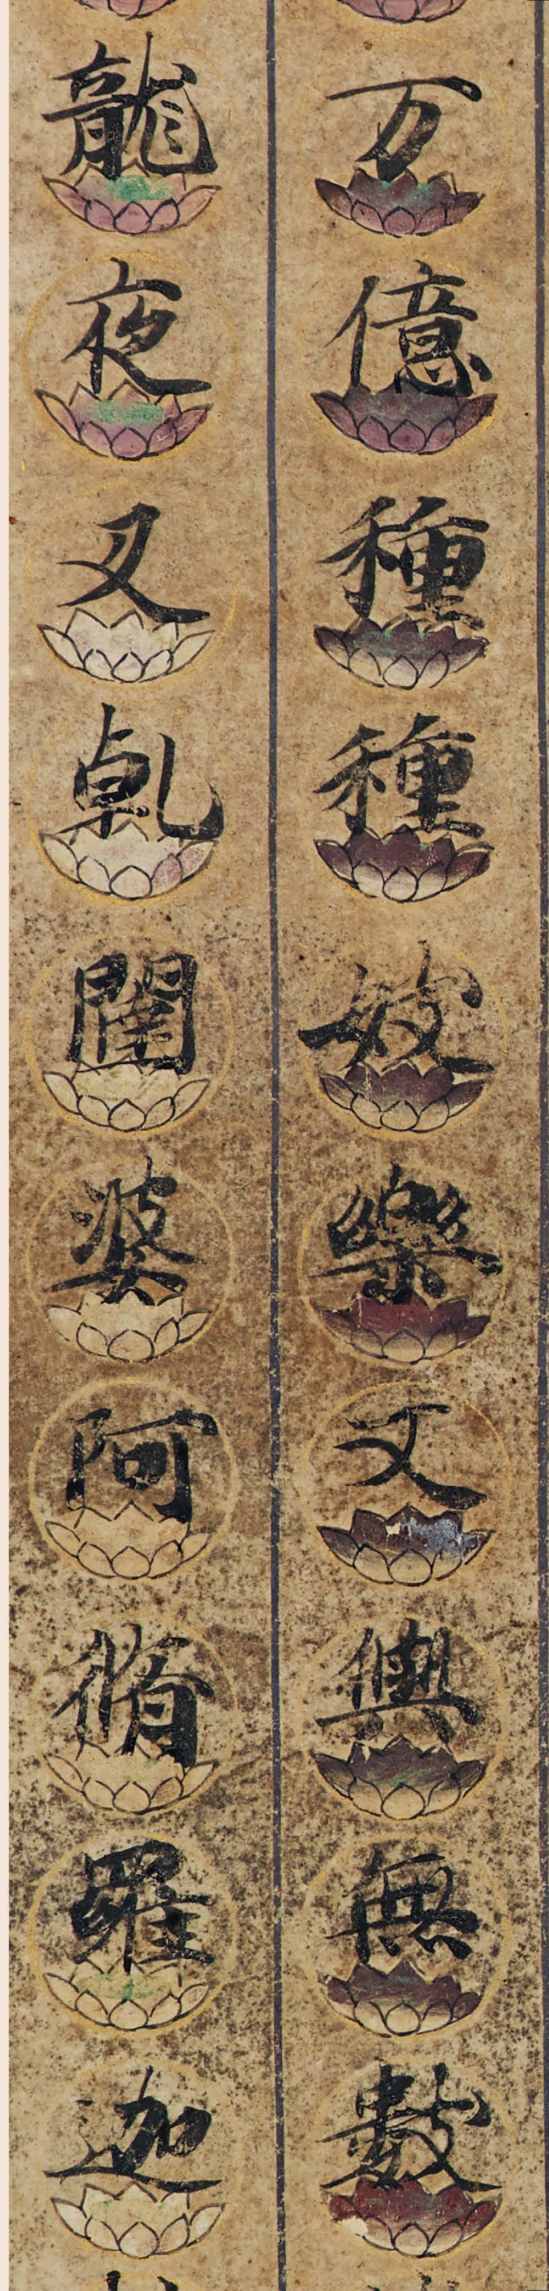 万億種種妓樂文與無數
龍夜叉乹闥婆阿脩羅迦